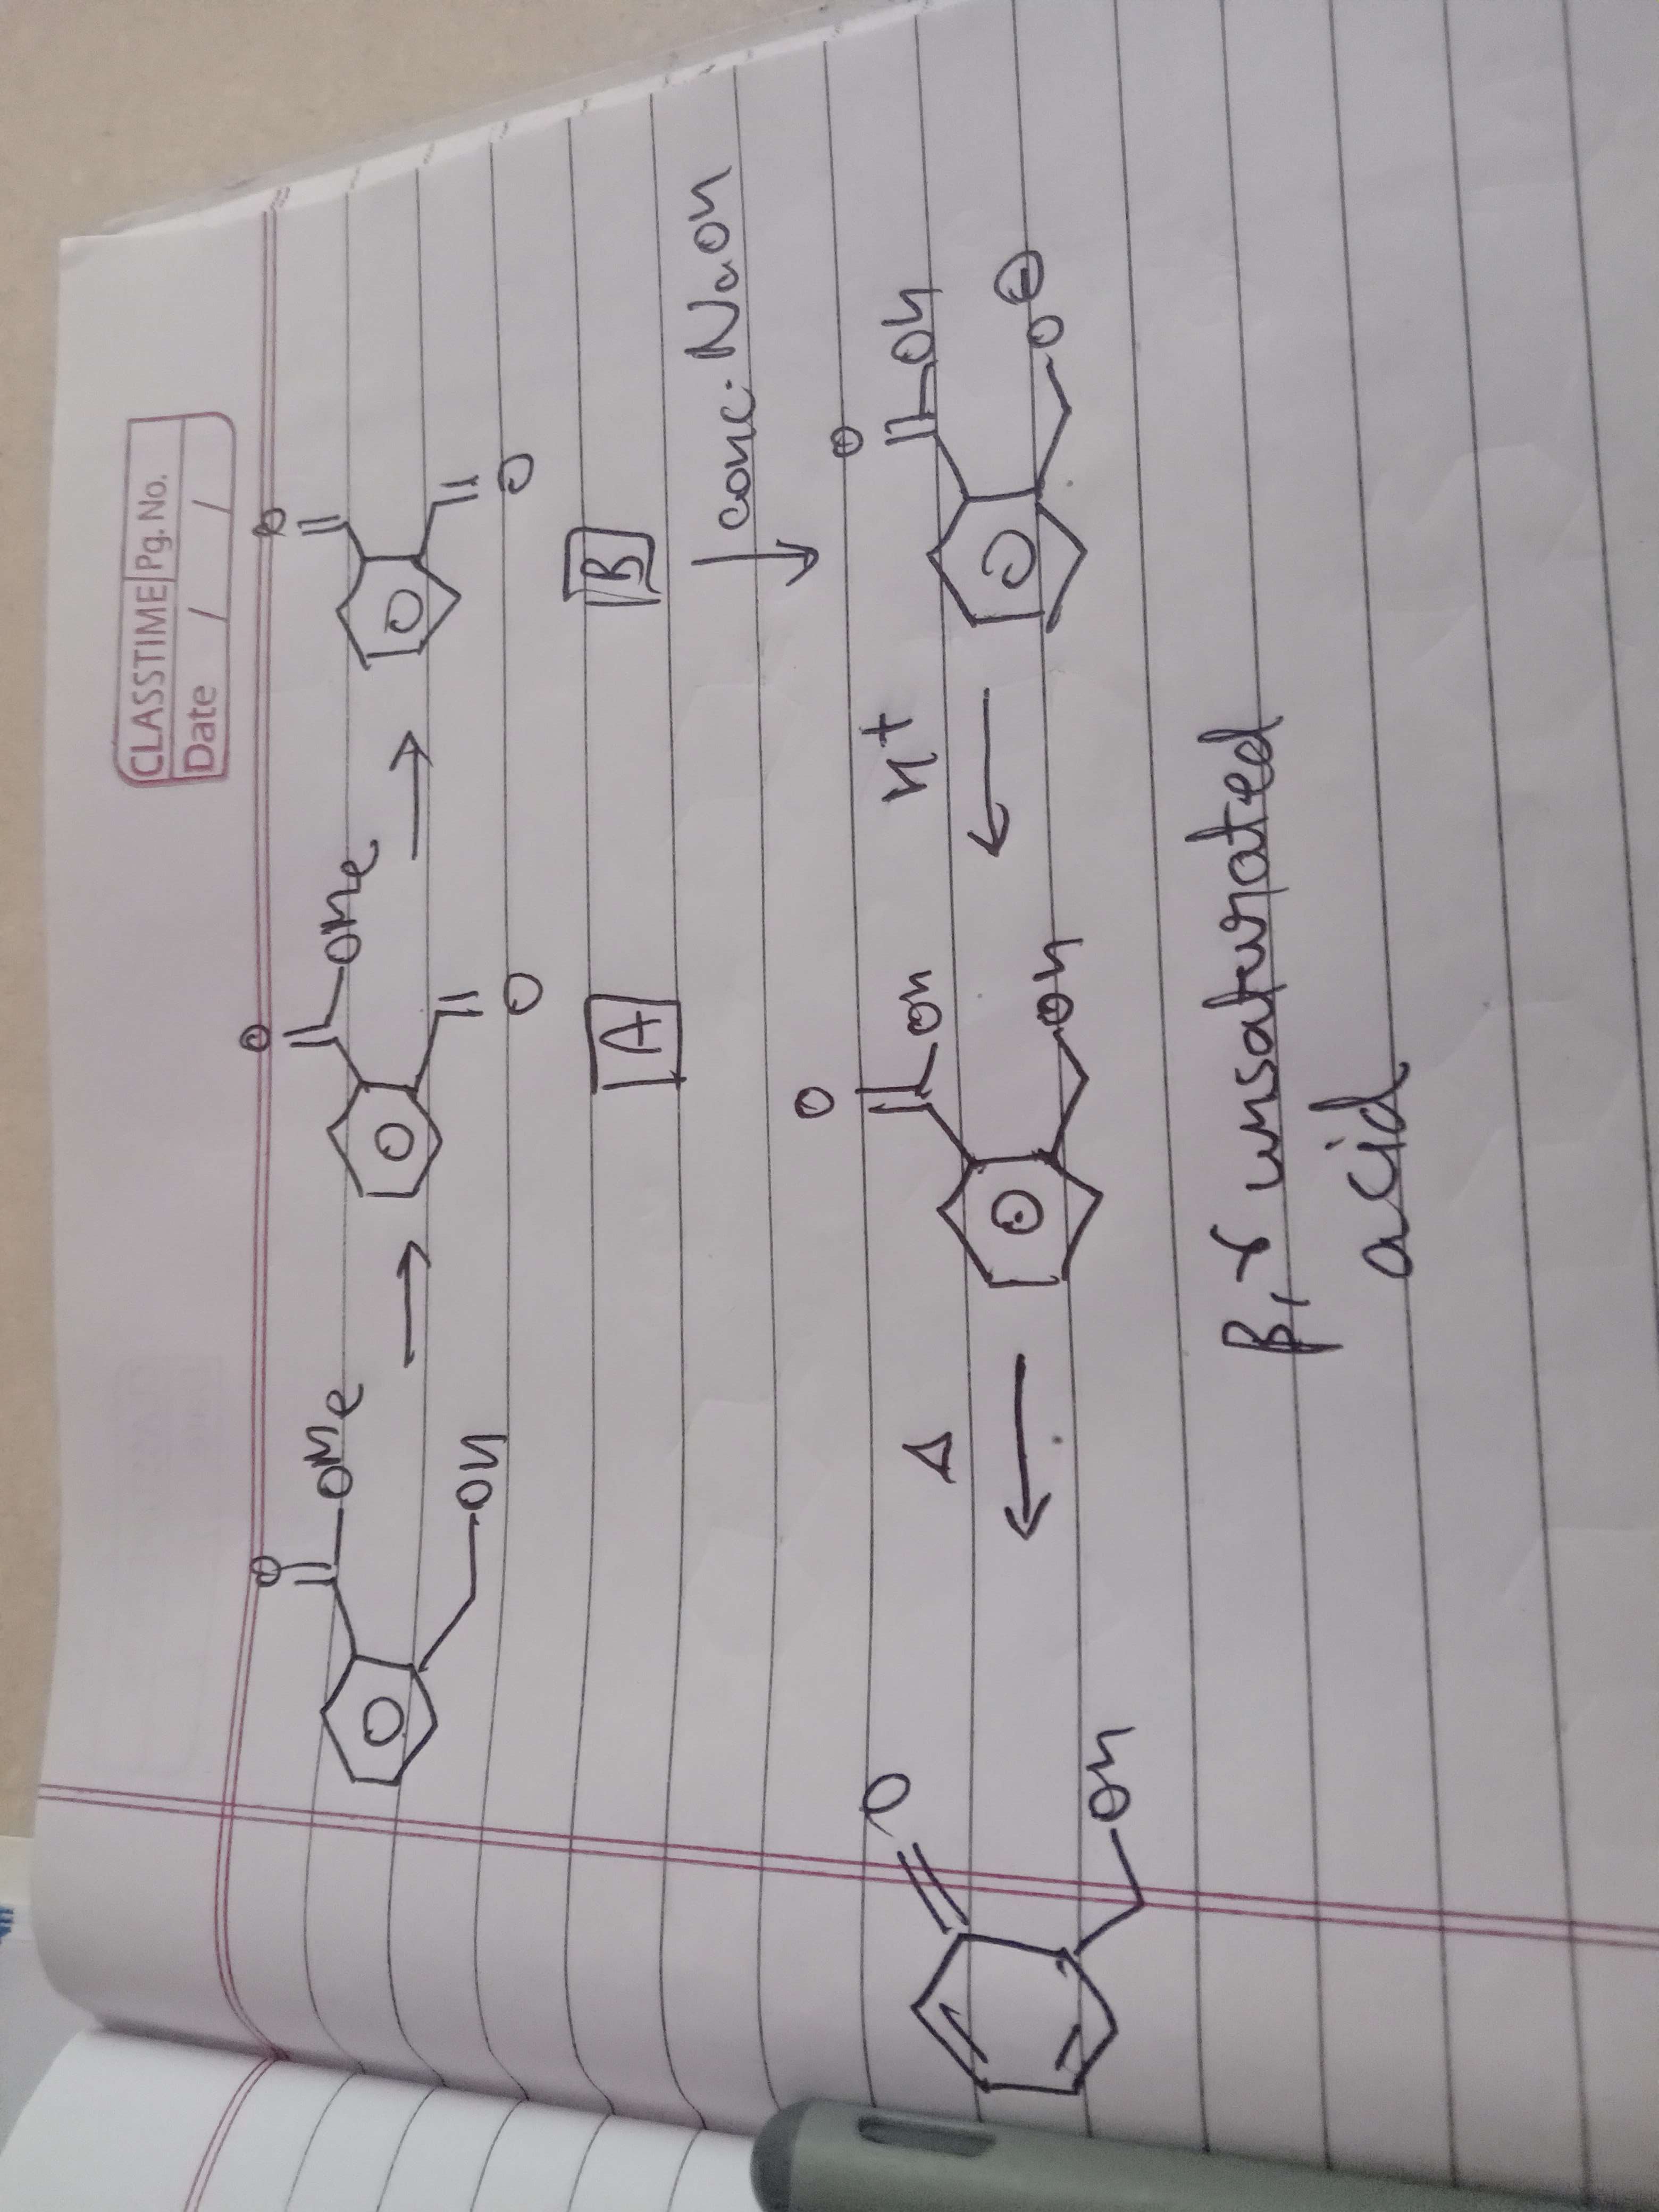 CLASSTIME Pg. No.
Date / /
O O O
OMe OMe
OH O O
A B
conc. NaOH
O O
O Δ OH H+ OH
OH OH O⊖
β,γ unsaturated
acid